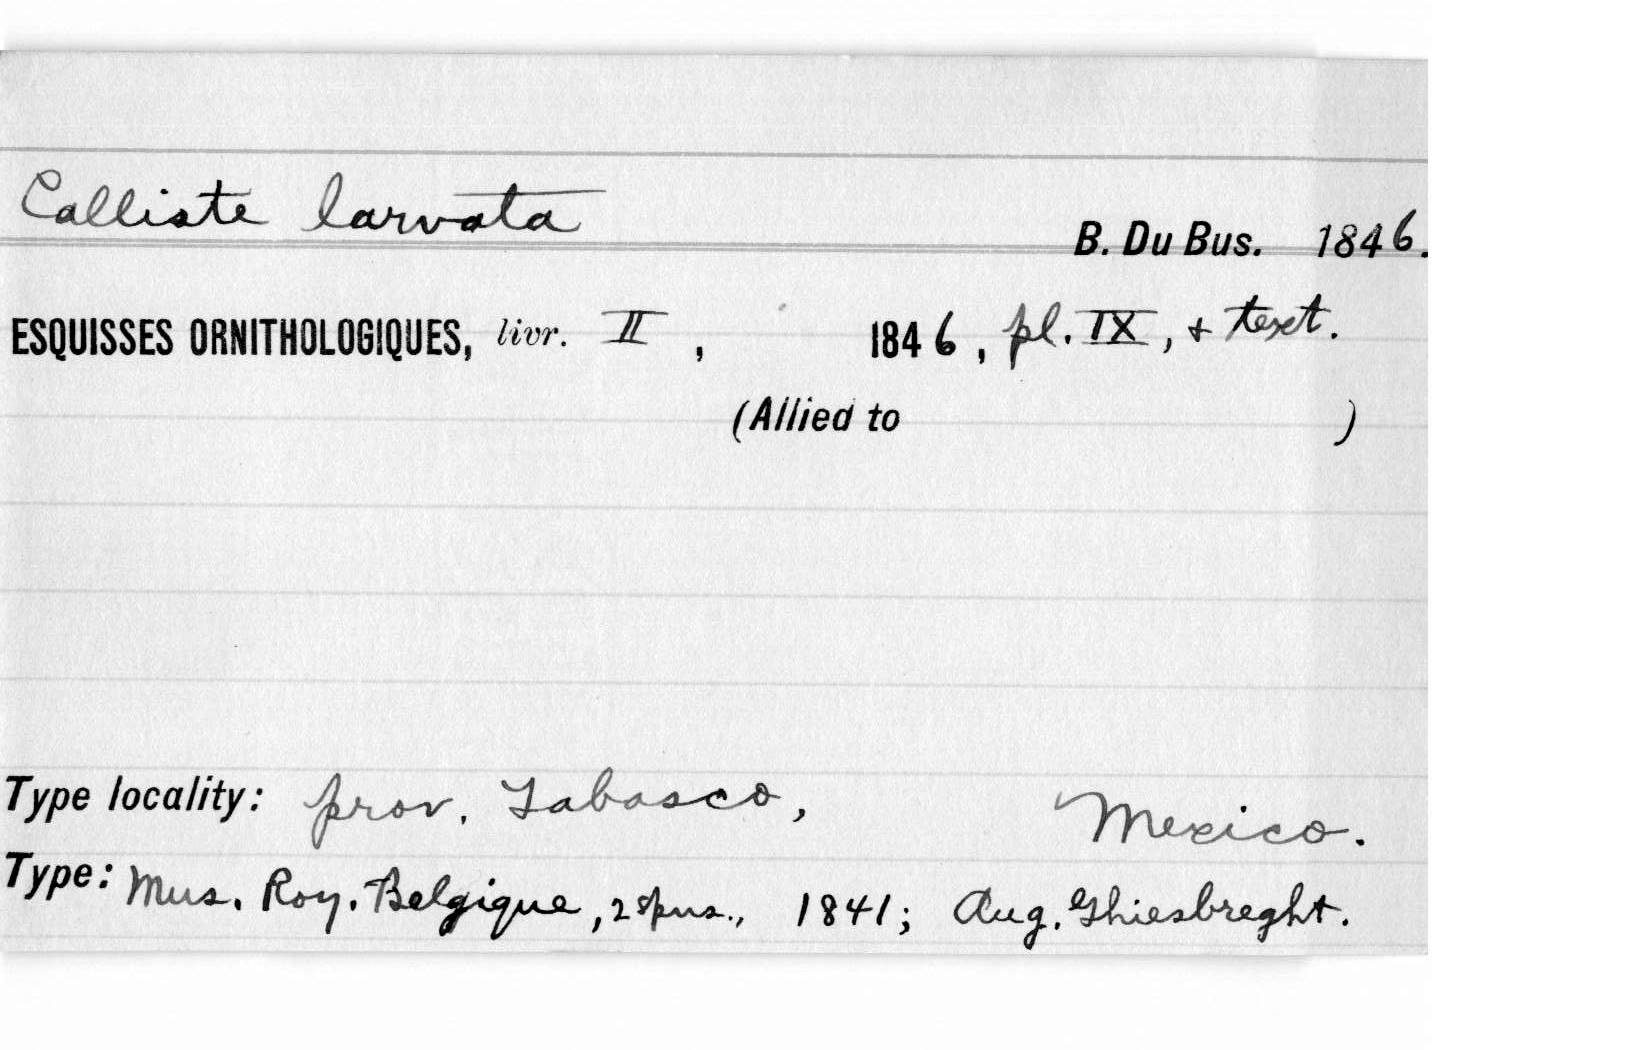 Calliste larvata
B. Du Bus. 1846.
ESQUISSES ORNITHOLOGIQUES, livr. II, 1846, pl. IX, + text.
(Allied to )
Type locality: prov. Tabasco, Mexico.
Type: Mus. Roy. Belgique, 2 spns., 1841; Aug. Ghiesbreght.